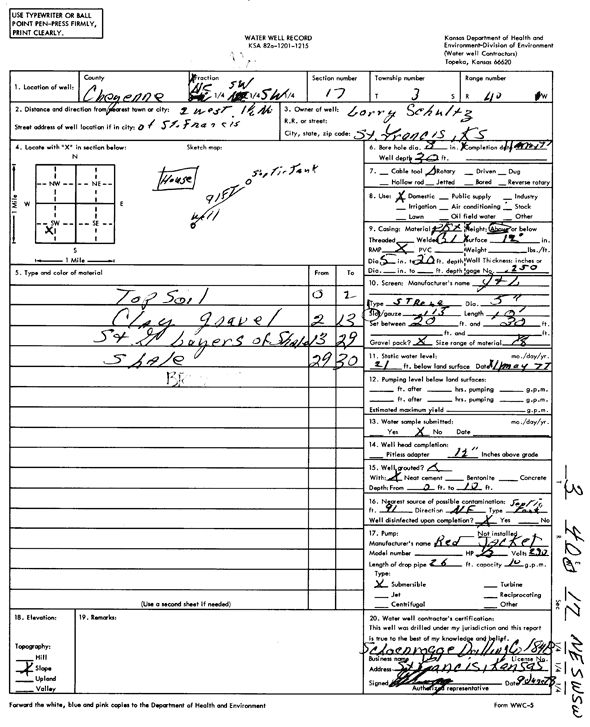 USE TYPEWRITER OR BALL
POINT PEN-PRESS FIRMLY,
PRINT CLEARLY.
WATER WELL RECORD
KSA 82a-1201-1215
Kansas Department of Health and
Environment-Division of Environment
(Water well Contractors)
Topeka, Kansas 66620
1. Location of well:
County
Cheyenne
Fraction
NE SW
1/4 1/4 SW 1/4
Section number
17
Township number
T 3 S
Range number
R 40 W
2. Distance and direction from nearest town or city: 2 west 1½ N
Street address of well location if in city: of St. Francis
3. Owner of well: Larry Schultz
R.R. or street:
City, state, zip code: St. Francis, KS
4. Locate with "X" in section below:
Sketch map:
N
NW NE
W E
SW SE
X
S
1 Mile
1 Mile
House
Septic Tank
91 FT
well
5. Type and color of material
From To
Top Soil 0 2
Clay gravel 2 13
Layers of Shale 13 29
Shale 29 30
(Use a second sheet if needed)
6. Bore hole dia. in. Completion date
Well depth 30 ft.
7. Cable tool Rotary Driven Dug
Hollow rod Jetted Bored Reverse rotary
8. Use: X Domestic Public supply Industry
Irrigation Air conditioning Stock
Lawn Oil field water Other
9. Casing: Material Height: Above or below
Threaded Welded Surface 12" in.
RMP X PVC Weight lbs./ft.
Dia. 5 in. to 20 ft. depth Wall Thickness: inches or
Dia. in. to ft. depth gage No. .250
10. Screen: Manufacturer's name
Type Dia. 5"
Slot/gauze Length 10'
Set between 20 ft. and 30 ft.
ft. and ft.
Gravel pack? X Size range of material
11. Static water level: mo./day/yr.
21 ft. below land surface Date 11 may 77
12. Pumping level below land surfaces:
ft. after hrs. pumping g.p.m.
ft. after hrs. pumping g.p.m.
Estimated maximum yield g.p.m.
13. Water sample submitted: mo./day/yr.
Yes X No Date
14. Well head completion:
Pitless adapter 12" Inches above grade
15. Well grouted?
With: X Neat cement Bentonite Concrete
Depth: From 0 ft. to 10 ft.
16. Nearest source of possible contamination: Septic
ft. 91 Direction NE Type Tank
Well disinfected upon completion? X Yes No
17. Pump: Not installed
Manufacturer's name Red Jacket
Model number HP 1/2 Volts 230
Length of drop pipe 26 ft. capacity 10 g.p.m.
Type:
X Submersible Turbine
Jet Reciprocating
Centrifugal Other
18. Elevation:
Topography:
Hill
X Slope
Upland
Valley
19. Remarks:
20. Water well contractor's certification:
This well was drilled under my jurisdiction and this report
is true to the best of my knowledge and belief.
Schoenrogge Drilling Co 184B
Business name License No.
Address St Francis, Kansas
Signed Date
Authorized representative
Forward the white, blue and pink copies to the Department of Health and Environment
Form WWC-5
T 3 R 40W Sec 17 NESWSW
1/4 1/4 1/4